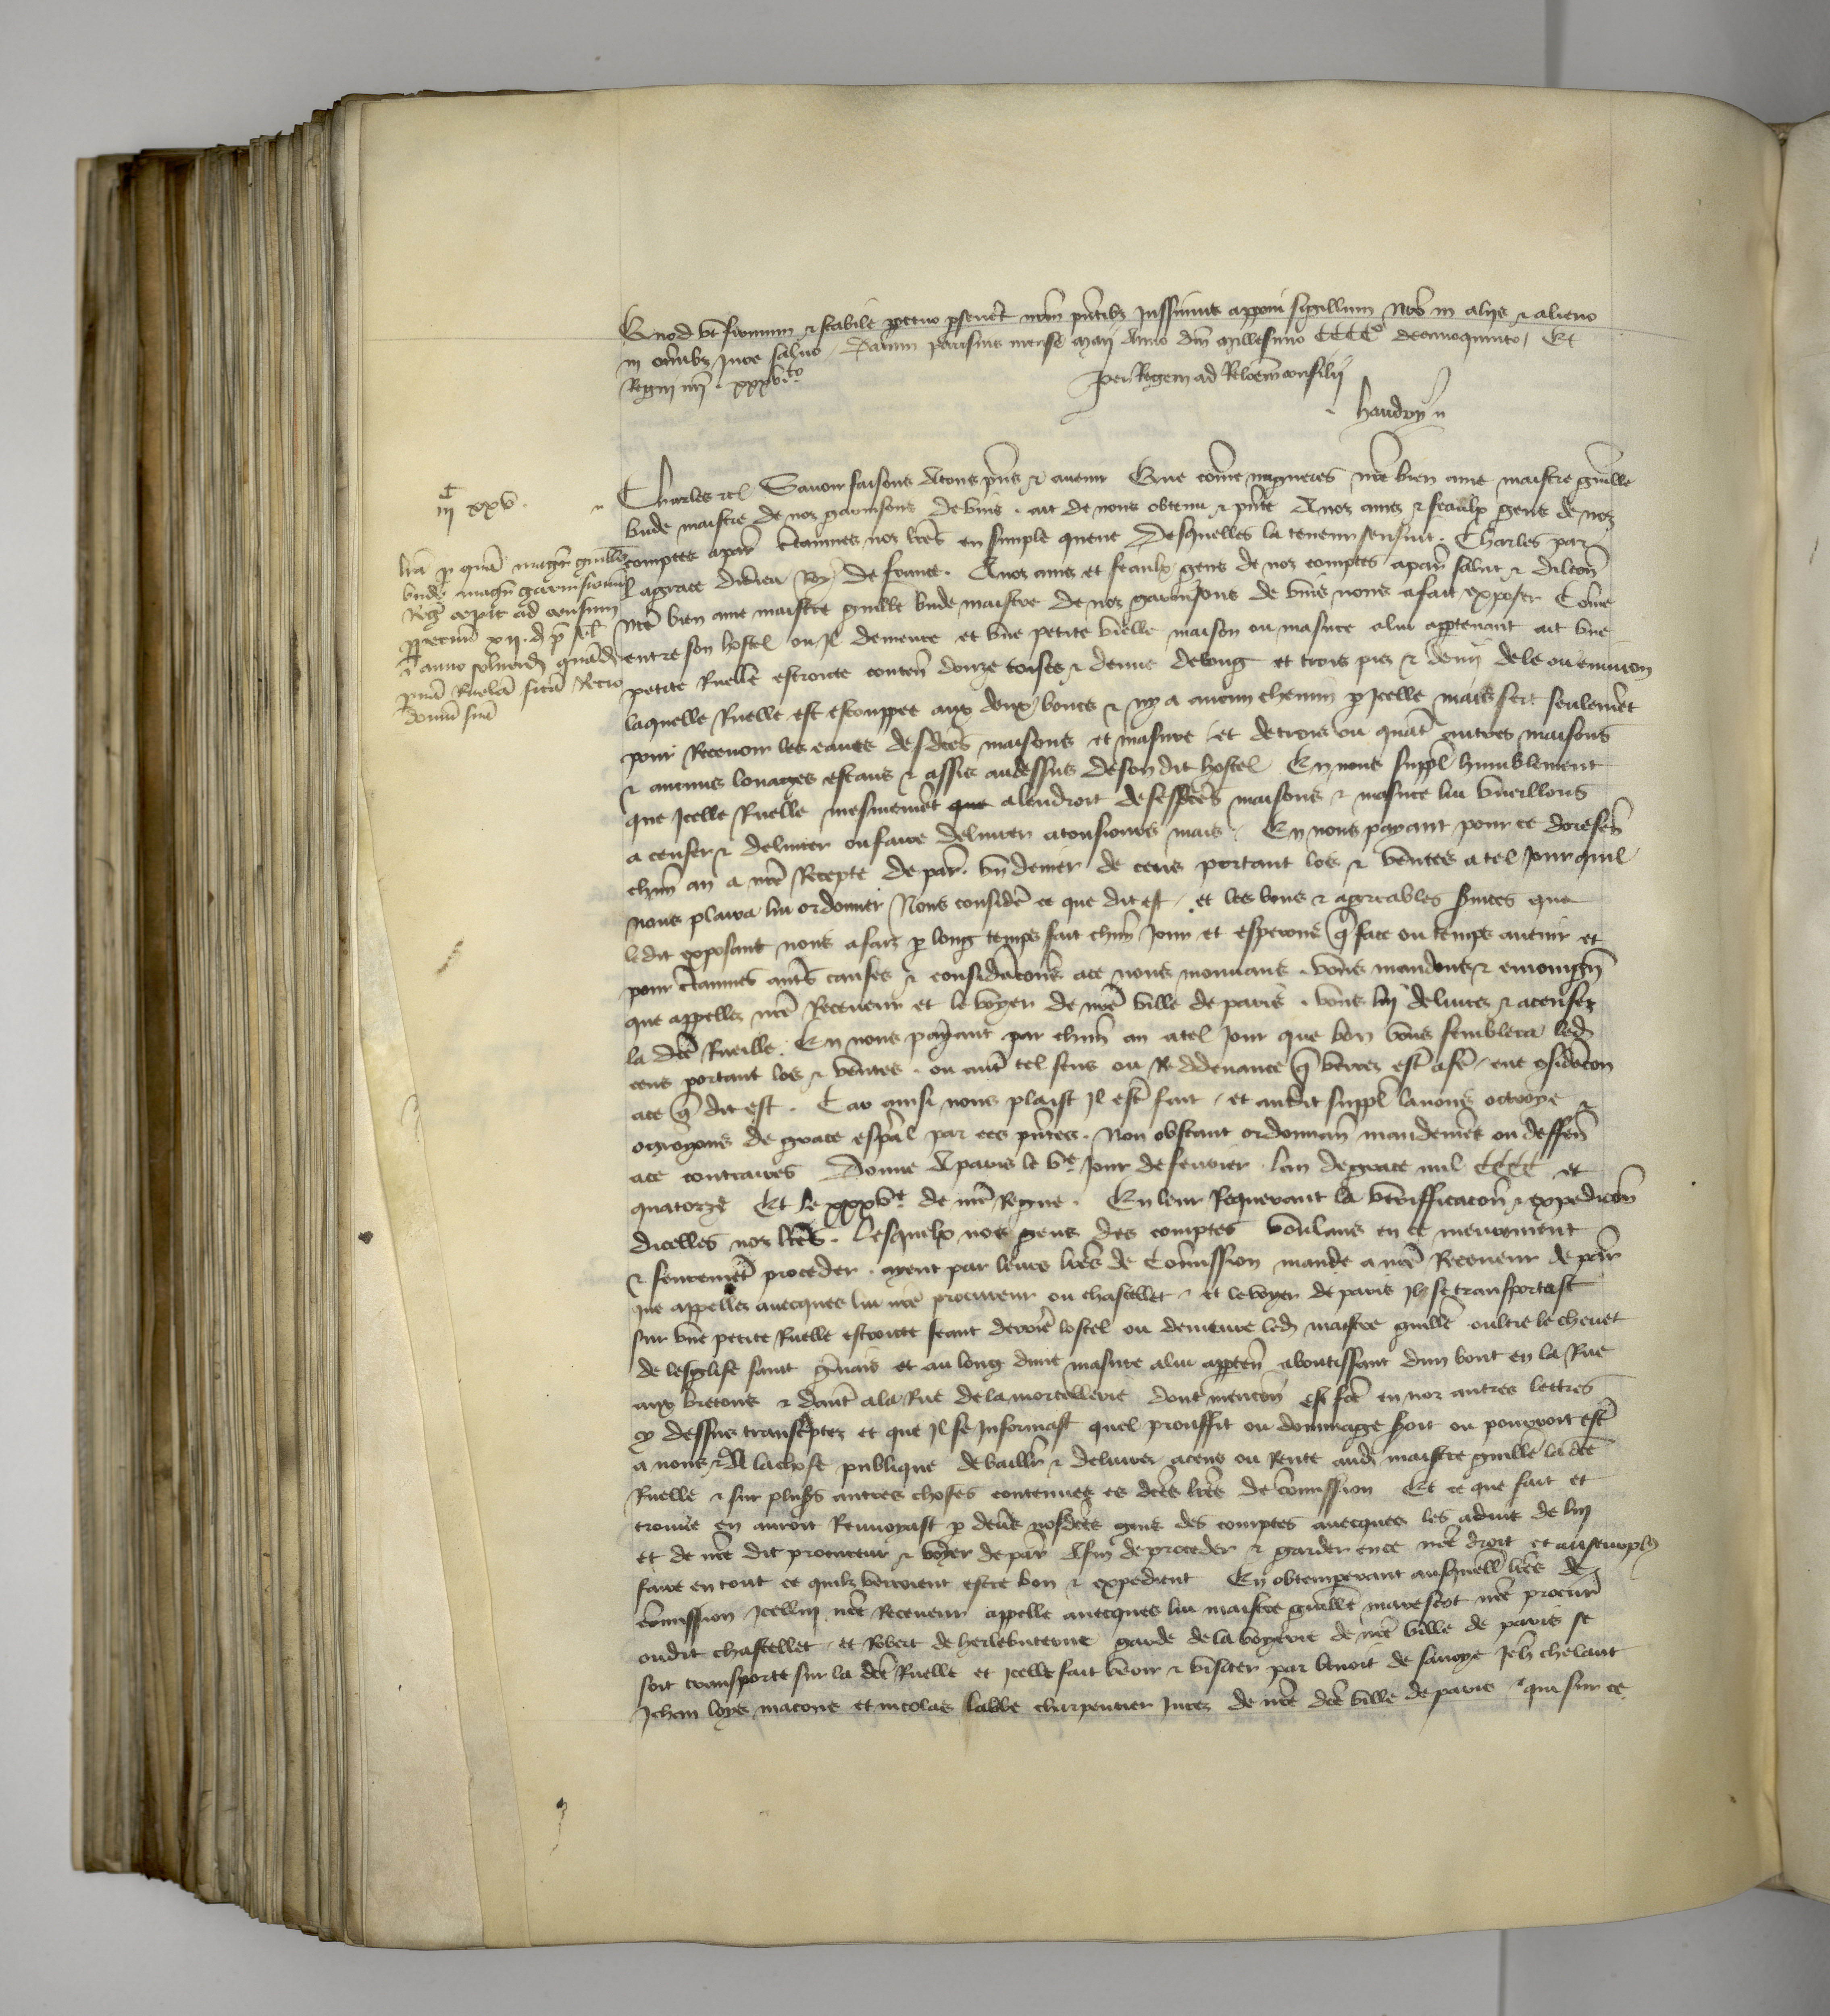 Quod ut firmum et stabile perpetuo perseveret nostrum presentibus jussimus apponi sigillum Nostro in aliis et alieno
in omnibus jure salvo. Datum parisius mense maij Anno dni millesimo CCCCo decimoquinto / Et
Regni nri xxxvto
Per Regem ad Relacoem consilij
haudry
iijc xxv.
lra per quam magr guills
bude magr garnisionum
Regis cepit ad censum
perpetuum xij. d. p.
anno solvend quamdam
parvam Ruelam sitam retro
domum suam
Charles etc Savoir faisons A tous pns et avenir Que come nagueres nre bien ame maistre guille
bude maistre de noz garnisons de vins . ait de nous obtenu et pnte A noz amez et feaulx gens de noz
comptes a par ctaines noz lres en simple queue Desquelles la teneur sensuit . Charles par
la grace de dieu Roy de france . A noz amez et feaulx gens de noz comptes a par salut et dilcon
Nre bien ame maistre guille bude maistre de noz garnisons de vins nous a fait exposer Come
entre son hostel ou Il demeure et une petite vielle maison ou masure a lui appartenant ait une
petite Ruelle estroite conten douze toises et demie de long et trois piez et demy de le ou environ
laquelle Ruelle est estouppee aux deux bouts et ny a aucun chemin p Icelle mais sert seulemet
pour Recevoir les eaues desdces maisons et masure / et de trois ou quat autres maisons
et aucuns louages estans et assis au dessus de son dit hostel En nous suppl humblement
que Icelle Ruelle mesmemet que a lendroit de sesdces maisons et masure lui vueillons
a censer et delivrer ou faire delivrer a tousiours mais . En nous paiant pour ce doresen
chun an a nre Recepte de par . un denier de cens portant los et ventes a tel Jour quil
nous plaira lui ordonner Nous consider ce que dit est . et les bons et agreables svices que
ledit exposant nous a faiz p long temps fait chun Jour et esperons q face ou temps avenir et
pour ctaines autes causes et consideracons a ce nous mouvans . vous mandons et enioign
que appellez nre Receveur et le voyer de nre ville de paris . vous luy delivrez et acensez
la dce Ruelle . En nous paiant par chun an a tel Jour que bon vous semblera led
cens portant los et ventes . ou aut tel sens ou Reddevance q verrez est a fe / eue consideracon
a ce q dit est . Car ainsi nous plaist Il est fait / et audit suppl lavons octroye et
octroyons de grace espal par ces pntes . Non obstant ordonnan mandemes ou deffen
a ce contraires Donne A paris le ve Jour de fevrier lan de grace mil CCCC et
quatorze Et le xxxve de nre Regne . En leur Requerant la veriffficacon et expedicon
dicelles noz lres . Lesquelx noz gens des comptes voulans en ce meurement
et seuremet proceder . ayent par leurs lres de Comission mande a nre Receveur de par
que appellez avecques lui nre procureur ou chastellet et le voyer de paris Ilz se transportast
sur une petite Ruelle estroite seant derrie lostel ou demeure led maistre guille oultre le chevet
de leglise saint gervais et au long dune masure a lui apparten aboutissant dun bout en la Rue
aux bretons et daut a la Rue de la mortellerie dont mencon est fce en noz autres lettres
cy dessus transcptes et que Il se Informast quel prouffit ou dommage soit ou pourroit est
a nous et A la chose publique de baillr et delivrer a cens ou Rente aud maistre guille la dce
Ruelle et sur plusrs autres choses contenues es dces lres de comission Et ce que fait et
trouve en auroit Renvoyast p devs nosdces gens des comptes avecques les advis de luy
et de nre dit procureur et voyer de par Afin de proceder et garder en ce nre droit et au seurplus
faire en tout ce quilz verroient estre bon et expedient En obtemperant ausquelles lres de
comission Icelluy nre Receveur appelle avecques lui maistre guille marescot nre procur
oudit chastellet . et Robert de herlebuterne garde de la voyerie de nre ville de paris se
soit transporte sur la dce Ruelle et Icelle fait veoir et visiter par benoit de savoye Jeh chelaut
Jehan loys macons et nicolas labbe charpentier Jurez de nre dce ville de paris . qui sur ce